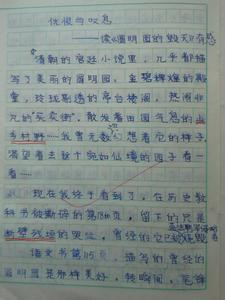 忧恨与叹息
——读《圆明园的毁灭》有感
清朝的宫廷小馆里，几乎都描
写了美丽的圆明园，金碧辉煌的殿
堂，玲珑剔透的亭台楼阁，热闹非
凡的“买卖街”，散发着田园气息的山
乡村野……我曾无数幻想着它的样子，
渴望着去这个宛如仙境的园子看一
看……
现在我终于看到了，在历史教
科书被撕碎的第186页，留下的只是
断壁残垣的哭泣，曾经的它已被烧毁
语文书第115页，描写的曾经的
圆明园是那样美好，转瞬间，笔锋